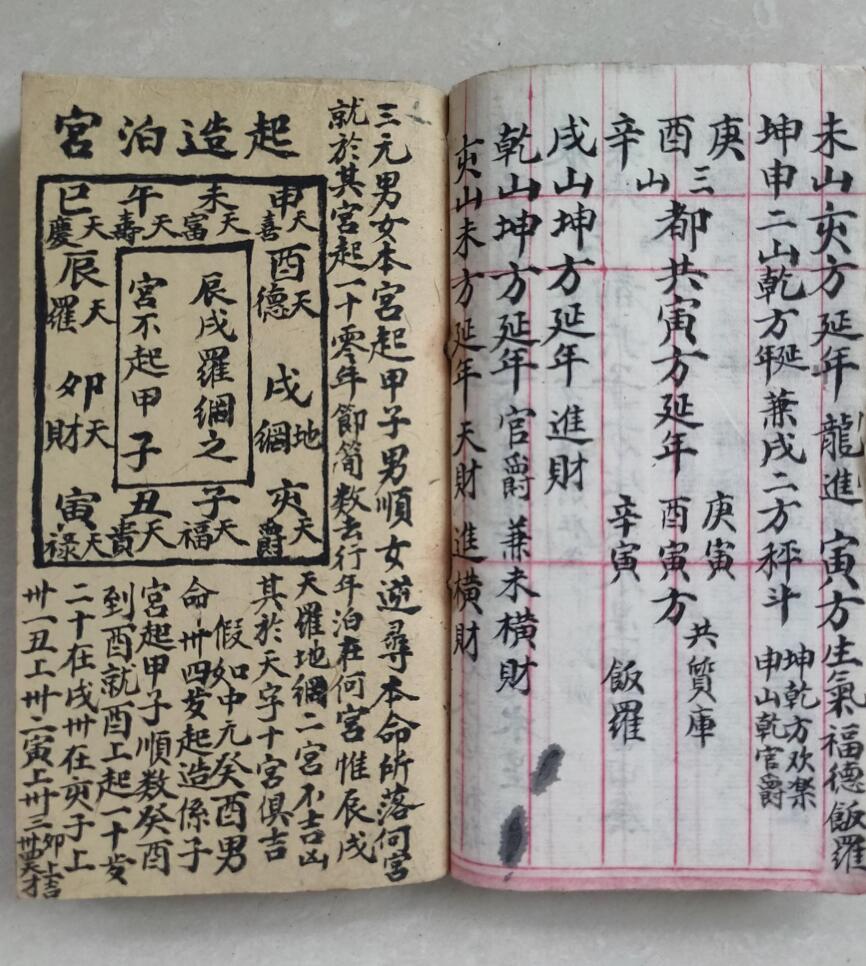 未山亥方延年龍進寅方生氣福德飯羅
坤申二山乾方延年兼戌二方秤斗
坤乾方欢楽
申山乾官爵
庚
酉三都共寅方延年
辛山
庚寅
酉寅方
辛寅
共質庫
飯羅
戌山坤方延年進財
乾山坤方延年官爵兼未橫財
亥山未方延年天財進橫財
起造泊宮
申天喜
未天富
午天壽
巳天慶
酉天德
辰天羅
戌地綱
卯天財
亥天爵
子天福
丑天貴
寅天祿
辰戌羅綱之
宮不起甲子
三元男女本宮起甲子男順女逆尋本命所落何宮
就於其宮起一十零年節简数去行年泊在何宮惟辰戌
天羅地綱二宮不吉凶
其於天字十宮俱吉
假如中元癸酉男
命卅四岁起造係子
宮起甲子順数癸酉
到酉就酉上起一十岁
二十在戌卅在亥子上
卅一丑上卅二寅上卅三卯上吉
卅四天才